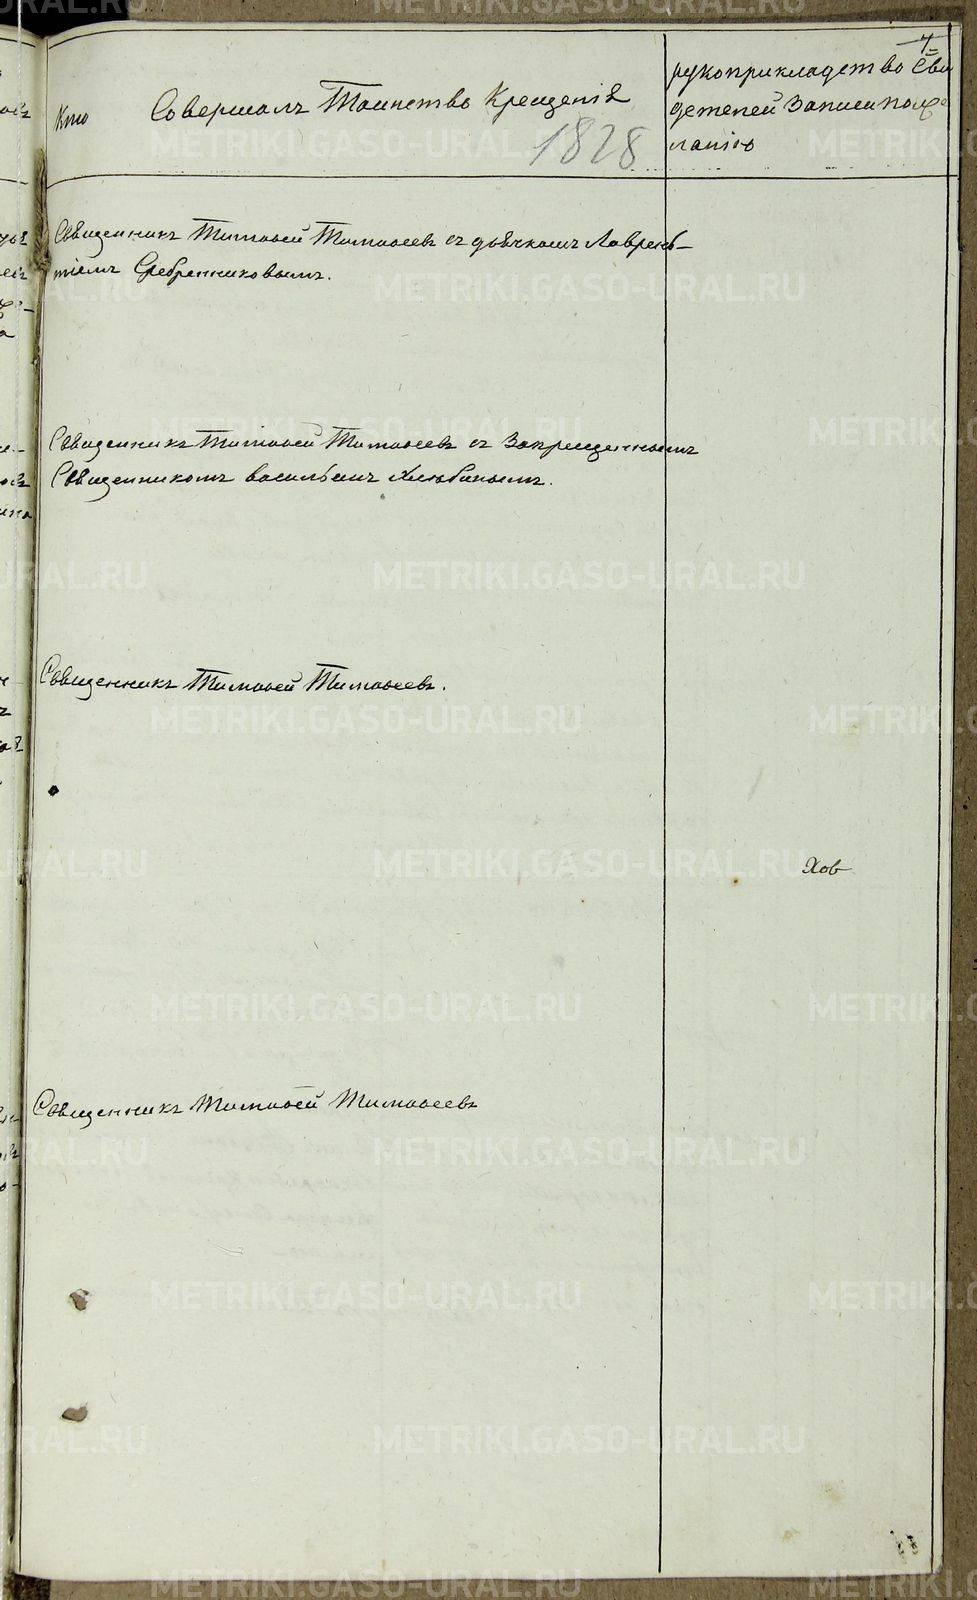 4
Кто Совершалъ Таинство Крещенія
1828
рукоприкладство Сви
детелей Записи по
ланію
Священникъ Тимофей Тимофеевъ съ дьячкомъ Лаврень-
тіемъ Сребренниковымъ.
Священникъ Тимофей Тимофеевъ съ Запрещеннымъ
Священникомъ васильемъ Хлюбинымъ.
Священникъ Тимофей Тимофеевъ.
Хов
Священникъ Тимофей Тимофеевъ
METRIKI.GASO-URAL.RU